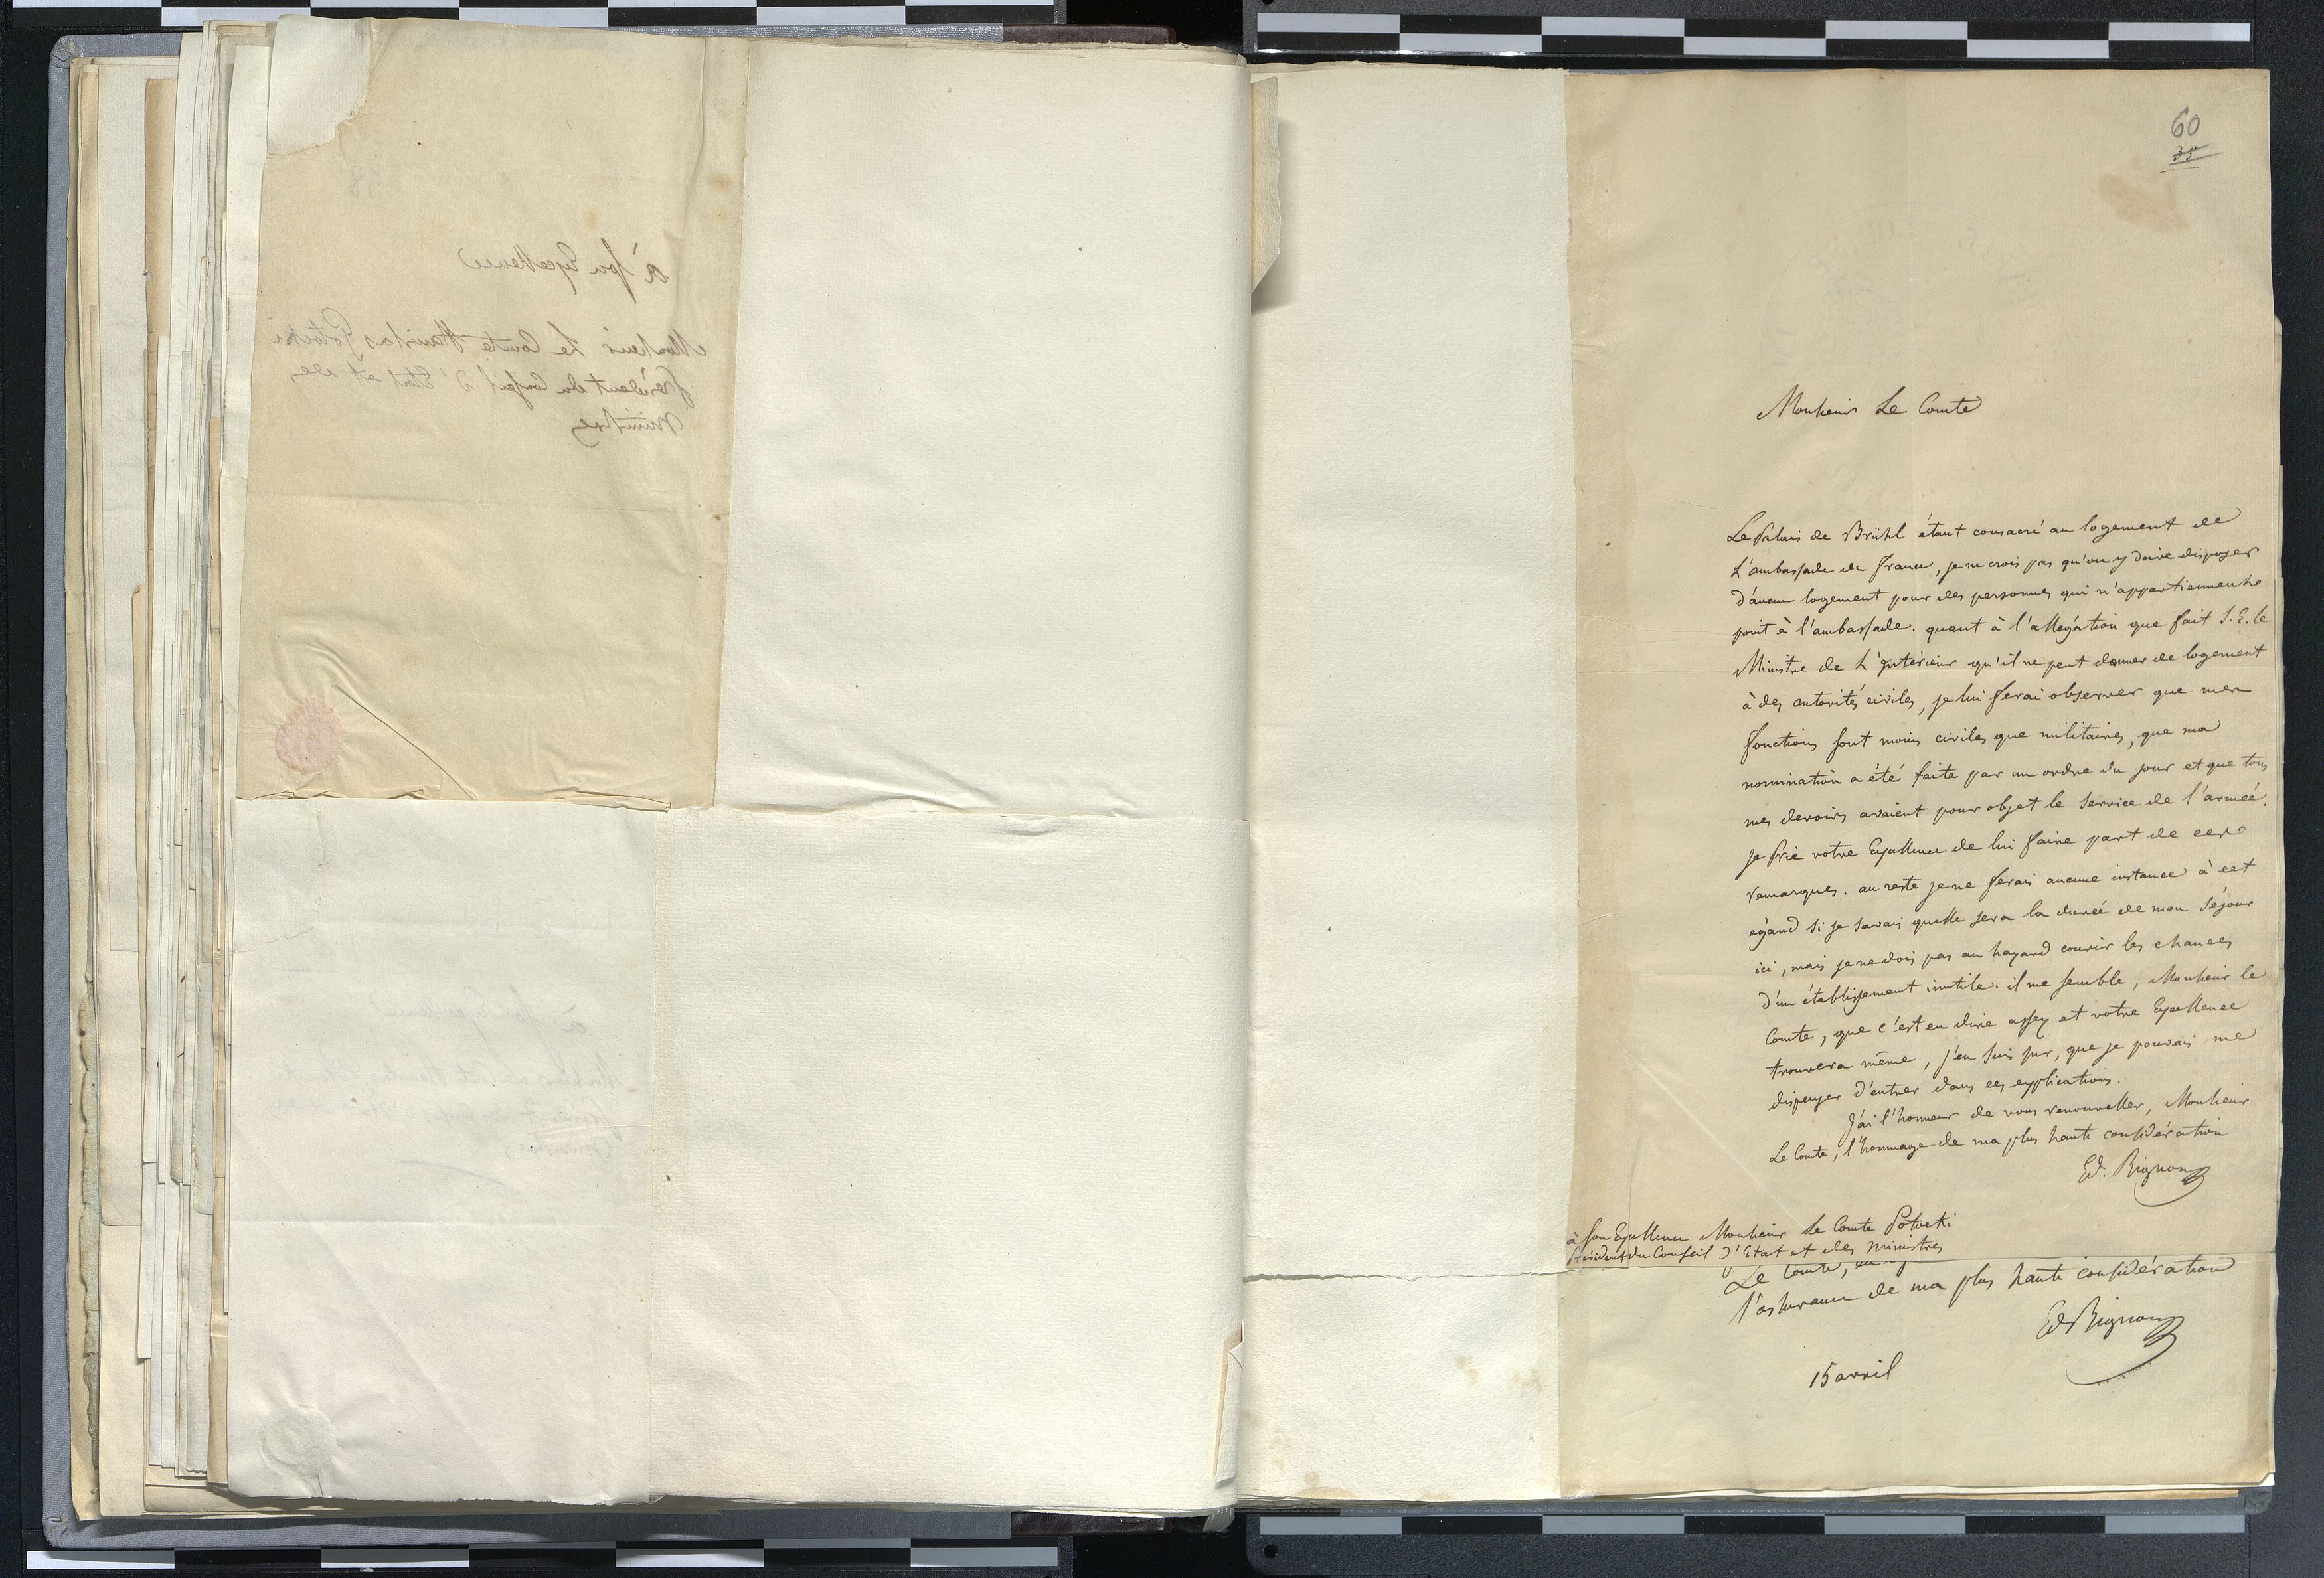 à son Excellence
Monsieur Le Comte Stanislas Potocki
président du Conseil d'Etat et des
ministres
à son Excellence
60
35
Monsieur Le Comte
Le Palais de Brühl étant consacré au logement de
L'ambassade de France, je ne crois pas qu'on y doive disposer
d'aucun logement pour des personnes qui n'appartiennent
point à l'ambassade. quant à l'allégation que fait S. E. le
Ministre de L'intérieur qu'il ne peut donner de logement
à des autorités civiles, je lui ferai observer que mes
fonctions sont moins civiles que militaires, que ma
nomination a été faite par un ordre du jour et que tous
mes devoirs avaient pour objet le service de l'armée.
Je prie votre Excellence de lui faire part de ces
remarques. au reste je ne ferais aucune instance à cet
égard si je savais quelle sera la durée de mon séjour
ici, mais je ne dois pas au hazard courir les chances
d'un établissement inutile. il me semble, Monsieur le
Comte, que c'est en dire assez et votre Excellence
trouvera même, j'en suis sur, que je pouvais me
dispenser d'entrer dans ces explications.
J'ai l'honneur de vous renouveller, Monsieur
Le Comte, l'hommage de ma plus haute considération
Ed. Bignon
à son Excellence Monsieur Le Comte Potocki
Président du Conseil d'Etat et des ministres
Le Comte,
l'assurance de ma plus haute considération
Ed Bignon
15 avril